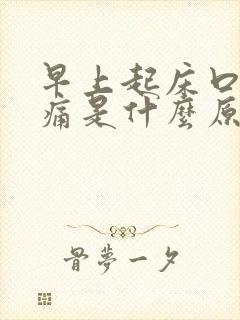 早上起床口
痛是什麼原
骨夢一夕